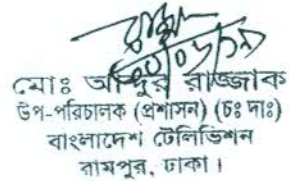 মোঃ আব্দুর রাজ্জাক
উপ-পরিচালক (প্রশাসন) (চঃ দাঃ)
বাংলাদেশ টেলিভিশন
রামপুর, ঢাকা।